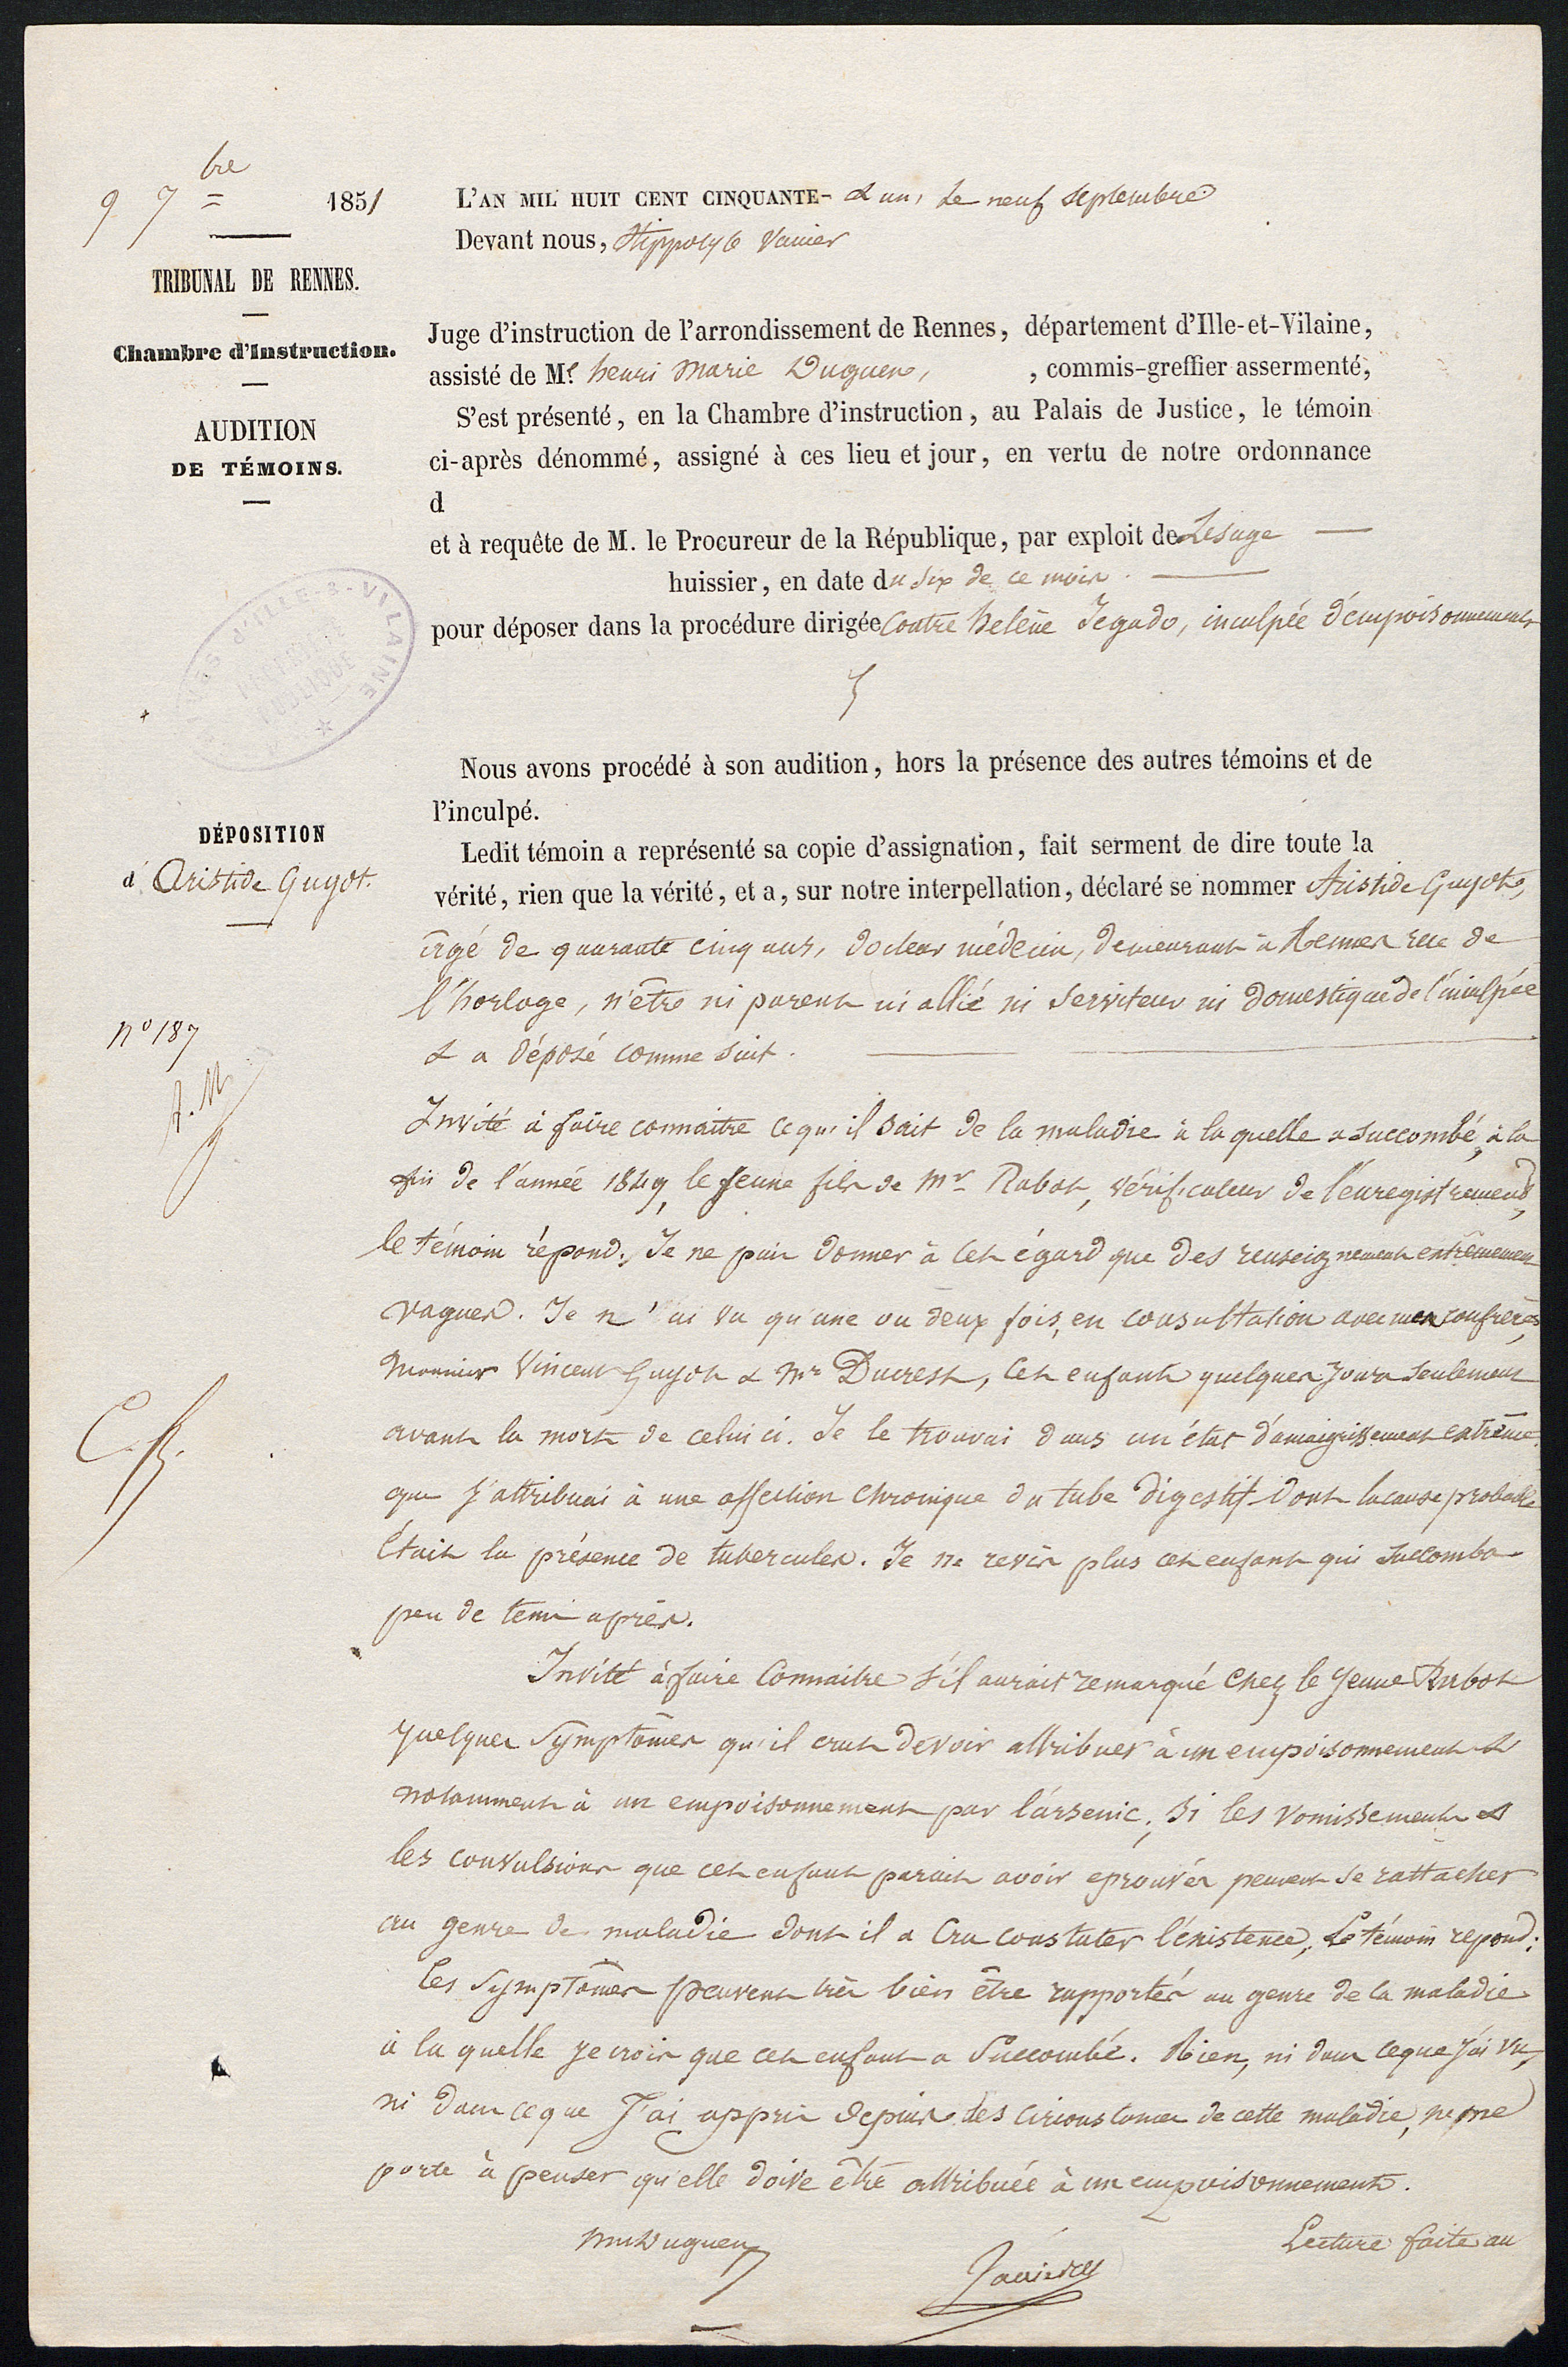 9 7bre 1851
TRIBUNAL DE RENNES.
Chambre d'Instruction.
AUDITION
DE TÉMOINS.
L'AN MIL HUIT CENT CINQUANTE- & un, le neuf septembre
Devant nous, Hippolyte Vanier
Juge d'instruction de l'arrondissement de Rennes, département d'Ille-et-Vilaine,
assisté de Me henri Marie Duguen, , commis-greffier assermenté,
S'est présenté, en la Chambre d'instruction, au Palais de Justice, le témoin
ci-après dénommé, assigné à ces lieu et jour, en vertu de notre ordonnance
d
et à requête de M. le Procureur de la République, par exploit de Lesage
huissier, en date du six de ce mois.
pour déposer dans la procédure dirigée Contre helène Jegado, inculpée d'empoisonnements
D'ILLE-&-VILAINE
Nous avons procédé à son audition, hors la présence des autres témoins et de
l'inculpé.
DÉPOSITION
d'Aristide Guyot.
Ledit témoin a représenté sa copie d'assignation, fait serment de dire toute la
vérité, rien que la vérité, et a, sur notre interpellation, déclaré se nommer Aristide Guyot,
âgé de quarante cinq ans, docteur médecin, demeurant à Rennes rue de
l'horloge, n'être ni parent ni allié ni serviteur ni domestique de l'inculpée
& a déposé comme suit.
no 187
Invité à faire connaitre ce qu'il sait de la maladie à la quelle a succombé, à la
fin de l'année 1849, le jeune fils de Mr Rabot, vérificateur de l'enregistrement,
le témoin répond: Je ne puis donner à cet égard que des renseignements extrêmement
vagues. Je n'ai vu qu'une ou deux fois, en consultation avec mes confrères,
Monsieur Vincent Guyot & Mr Ducrest, cet enfant quelques jours seulement
avant la mort de celui ci. Je le trouvai dans un état d'amaigrissement extrême
que j'attribuai à une affection chronique du tube digestif dont la cause probable
était la présence de tubercules. Je ne revis plus cet enfant qui succomba
peu de tems après.
Invité à faire connaitre s'il aurait remarqué chez le jeune Rabot
quelques symptômes qu'il crut devoir attribuer à un empoisonnement &
notamment à un empoisonnement par l'arsenic; si les vomissements &
les convulsions que cet enfant parait avoir eprouvés peuvent se rattacher
au genre de maladie dont il a cru constater l'existence, Le témoin repond:
Ces symptômes peuvent très bien être rapportés au genre de la maladie
à la quelle je crois que cet enfant a succombé. Rien, ni dans ce que j'ai vu,
ni dans ce que j'ai appris depuis des circonstances de cette maladie, ne me
porte à penser qu'elle doive être attribuée à un empoisonnement.
Lecture faite au